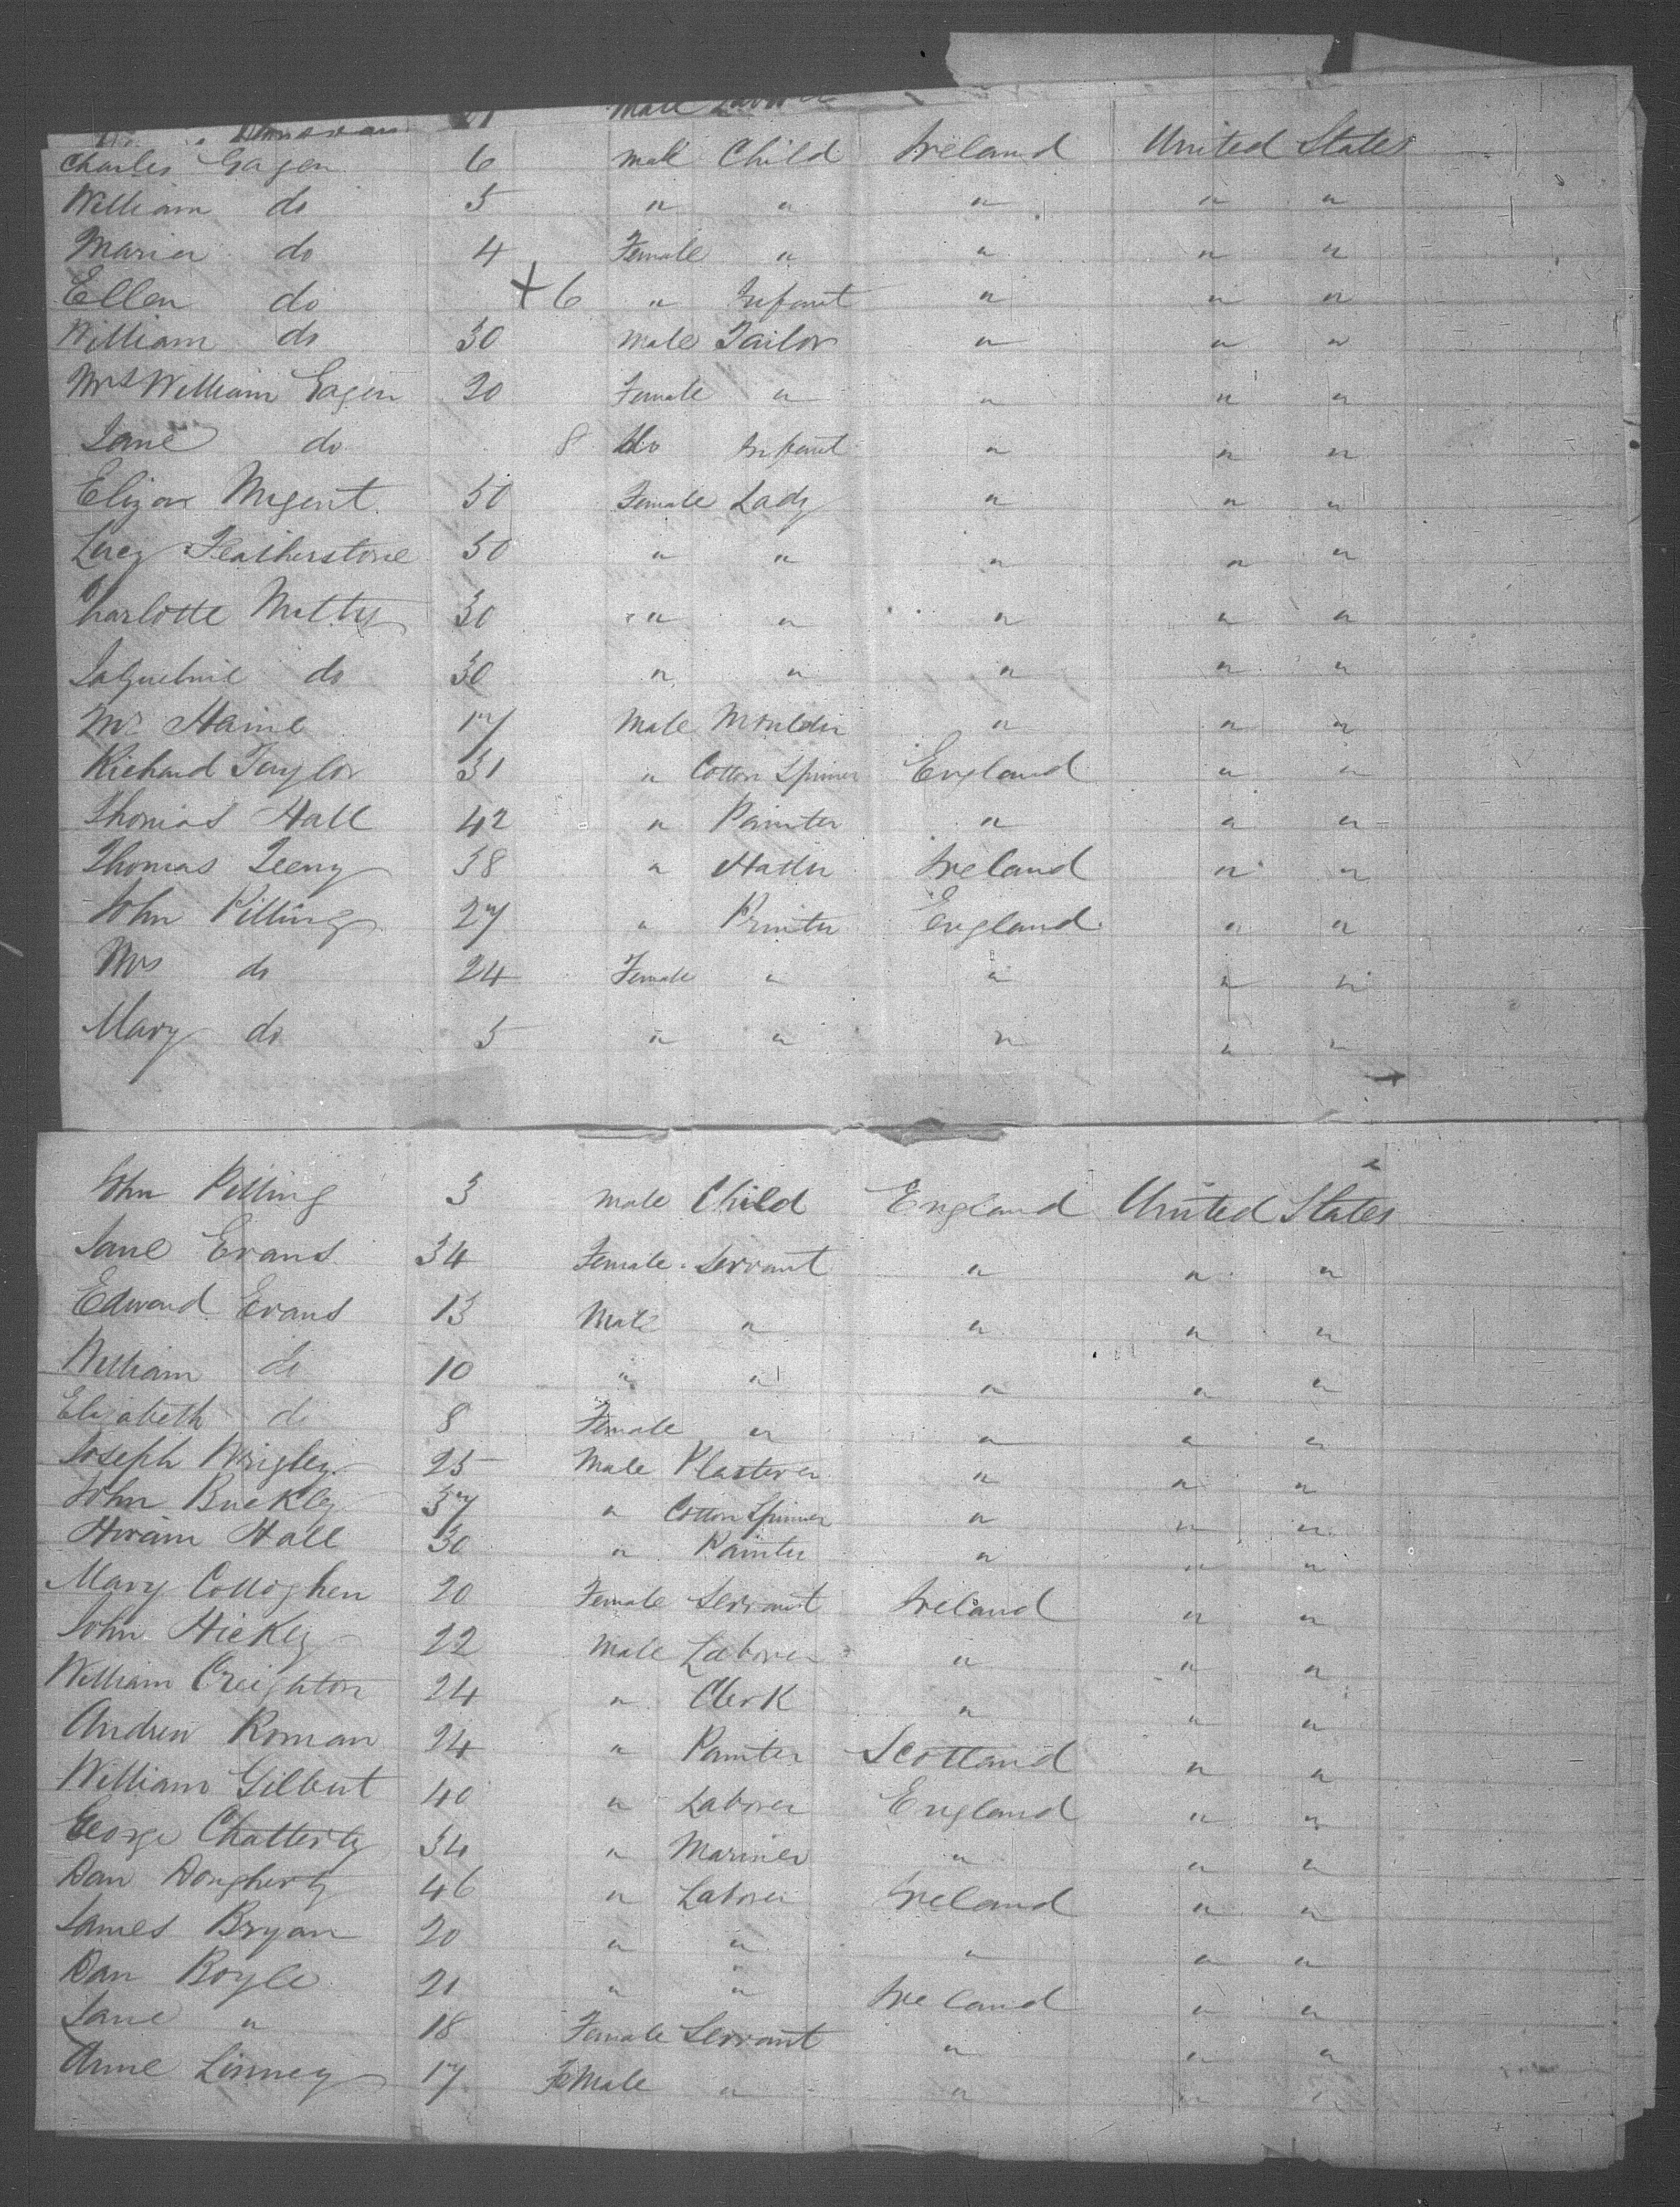 Donovan 21 Male Labor
Charles Eagen 6 male Child Ireland United States
William do 5 " " " " "
Maria do 4 Female " " " "
Ellen do + 6 " Infant " " "
William do 30 Male Tailor " " "
Mrs William Eagen 20 Female " " " "
Jane do 8 do Infant " " "
Eliza Nugent 50 Female Lady " " "
Lucy Featherstone 50 " " " " "
Charlotte 30 " " " " "
Jaqueline do 30 " " " " "
Mr Haine 17 Male Moulder " " "
Richard Taylor 31 " Cotton Spinner England " "
Thomas Hall 42 " Painter " " "
Thomas Leeny 38 " Hatter Ireland " "
John Pilling 27 " Printer England " "
Mrs do 24 Female " " " "
Mary do 5 " " " " "
John Pilling 3 male Child England United States
Jane Evans 34 Female Servant " " "
Edward Evans 13 Male " " " "
William do 10 " " " " "
Elizabeth do 8 Female " " " "
Joseph Wrigley 25 Male Plasterer " " "
John Buckley 37 " Cotton Spinner " " "
Hiram Hall 30 " Painter " " "
Mary Colloghen 20 Female Servant Ireland " "
John Hickly 22 Male Laborer " " "
William Creighton 24 " Clerk " " "
Andrew Roman 24 " Painter Scotland " "
William Gilbert 40 " Laborer England " "
George Chatterly 34 " Mariner " " "
Dan Dougherty 46 " Laborer Ireland " "
James Bryan 20 " " " " "
Dan Boyle 21 " " Ireland " "
Jane " 18 Female Servant " " "
Anne Linney 17 FeMale " " " "